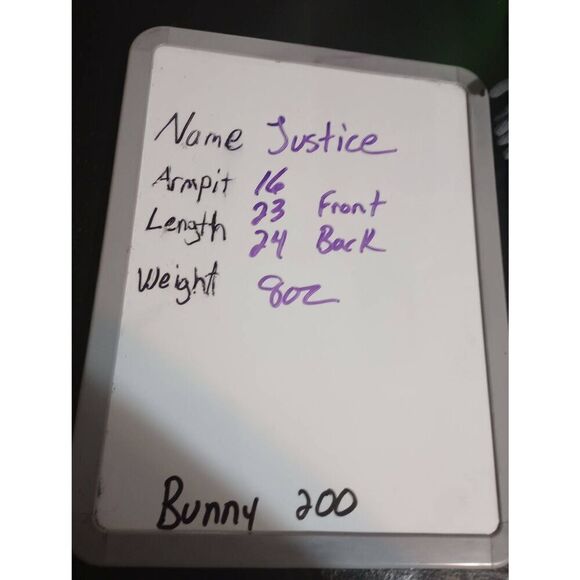 Name Justice
Armpit 16
Length 23 Front
24 Back
Weight 8oz
Bunny 200